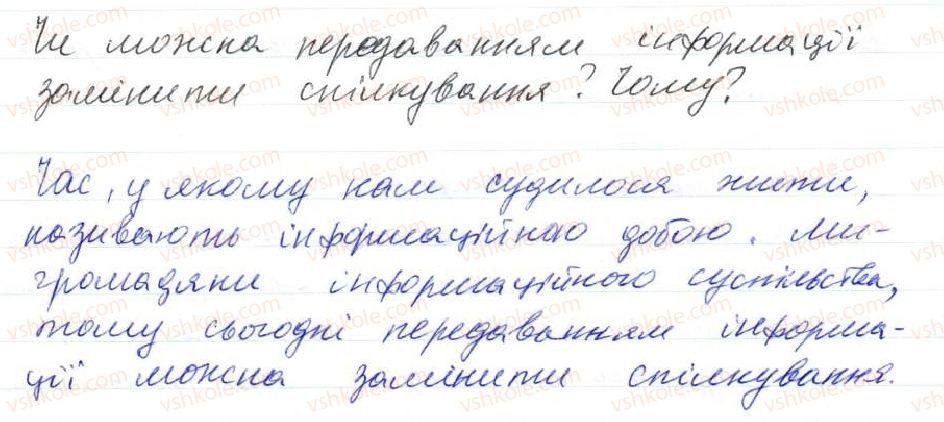 Чи можна передаванням інформації
замінити спілкування? Чому?
Час, у якому нам судилося жити,
називають інформаційною добою. Ми-
громадяни інформаційного суспільства,
тому сьогодні передаванням інформа-
ції можна замінити спілкування.